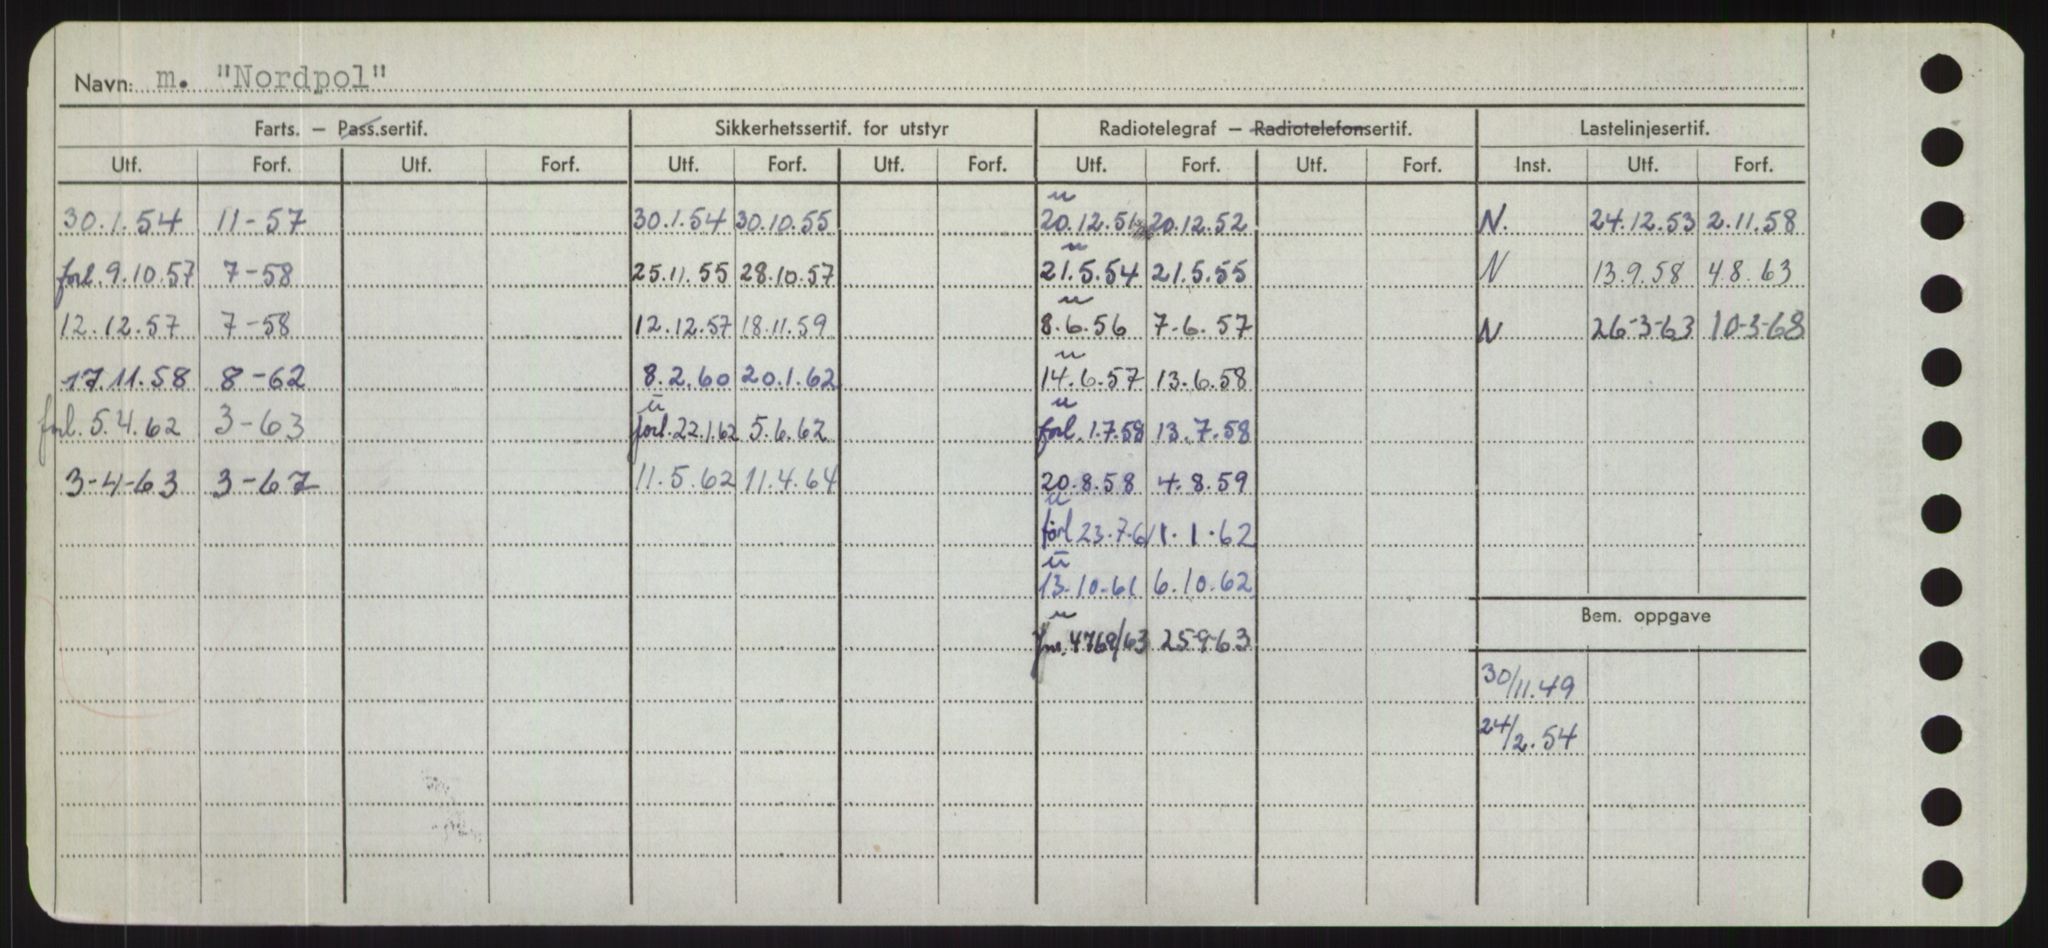 Navn: m. "Nordpol"
Farts. – Pass.sertif. Sikkerhetssertif. for utstyr Radiotelegraf – Radiotelefonsertif. Lastelinjesertif.
Utf. Forf. Utf. Forf. Utf. Forf. Utf. Forf. Utf. Forf. Utf. Forf. Inst. Utf. Forf.
u
30.1.54 11-57 30.1.54 30.10.55 20.12.51 20.12.52 N. 24.12.53 2.11.58
u
forl. 9.10.57 7-58 25.11.55 28.10.57 21.5.54 21.5.55 N 13.9.58 4.8.63
u
12.12.57 7-58 12.12.57 18.11.59 8.6.56 7.6.57 N 26-3-63 10-3-68
u
17.11.58 8-62 8.2.60 20.1.62 14.6.57 13.6.58
u u
forl. 5.4.62 3-63 forl. 22.1.62 5.6.62 forl. 1.7.58 13.7.58
3-4-63 3-67 11.5.62 11.4.64 20.8.58 4.8.59
u
forl 23.7.61 1.1.62
u
13.10.61 6.10.62
Bem. oppgave
u
4768/63 25-9-63
30/11.49
24/2.54